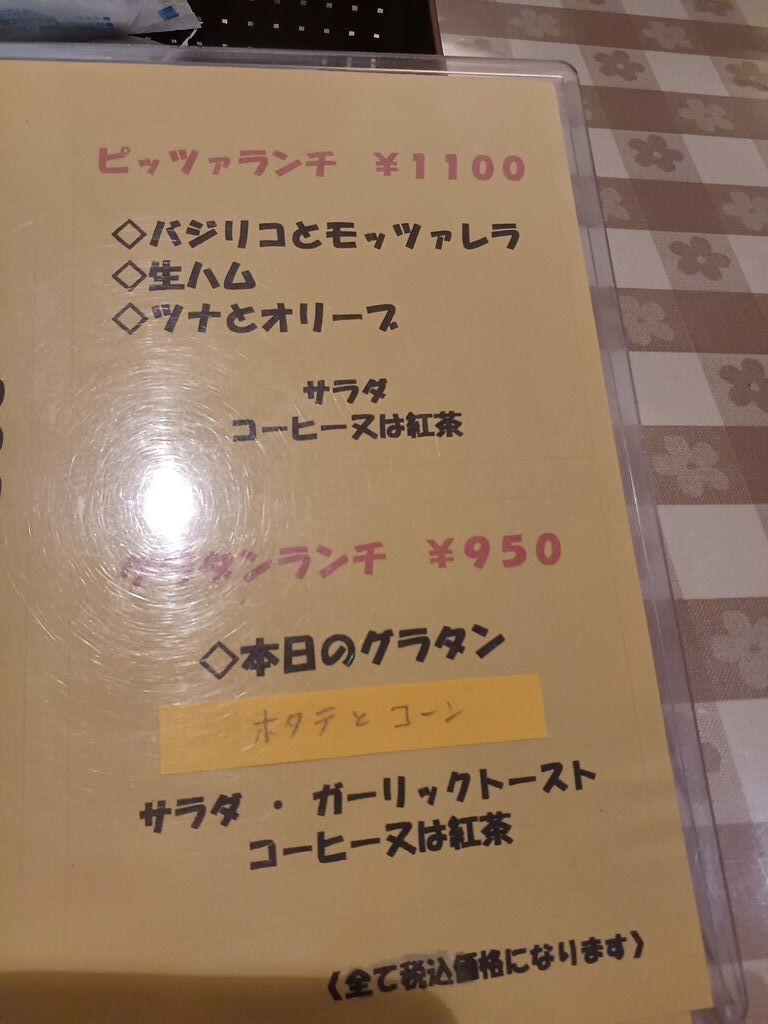 ピッツァランチ ￥1100
◇バジリコとモッツァレラ
◇生ハム
◇ツナとオリーブ
サラダ
コーヒー又は紅茶
グラタンランチ ￥950
◇本日のグラタン
ホタテとコーン
サラダ・ガーリックトースト
コーヒー又は紅茶
〈全て税込価格になります〉